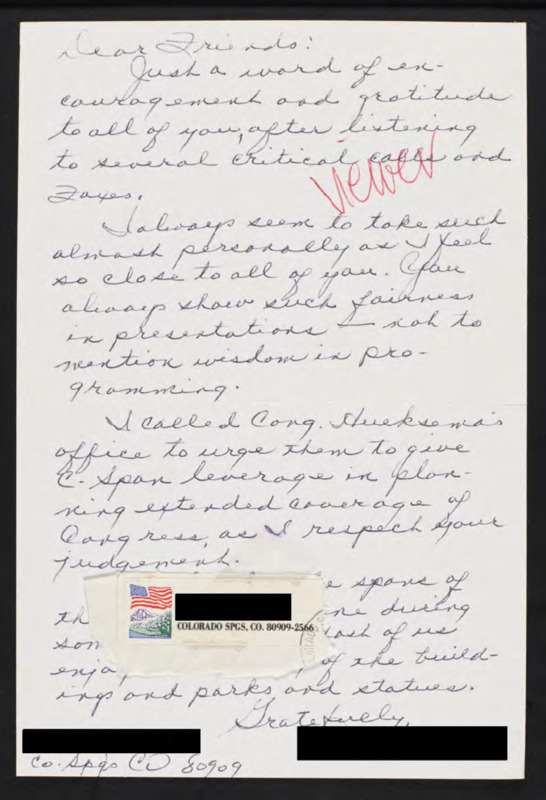 Dear Friends:
Just a word of en-
couragement and gratitude
to all of you, after listening
to several critical calls and
Faxes.
Viewer
I always seem to take such
almost personally as I feel
so close to all of you. You
always show such fairness
in presentations — not to
mention wisdom in pro-
gramming.
I called Cong. Hueksema's
office to urge them to give
C-Span leverage in plan-
ning extended coverage of
Congress, as I respect your
judgement.
e spans of
th ne during
som of us
COLORADO SPGS, CO. 80909-2566
enjo of the build-
ings and parks and statues.
Gratefully,
Co. Spgs CO 80909